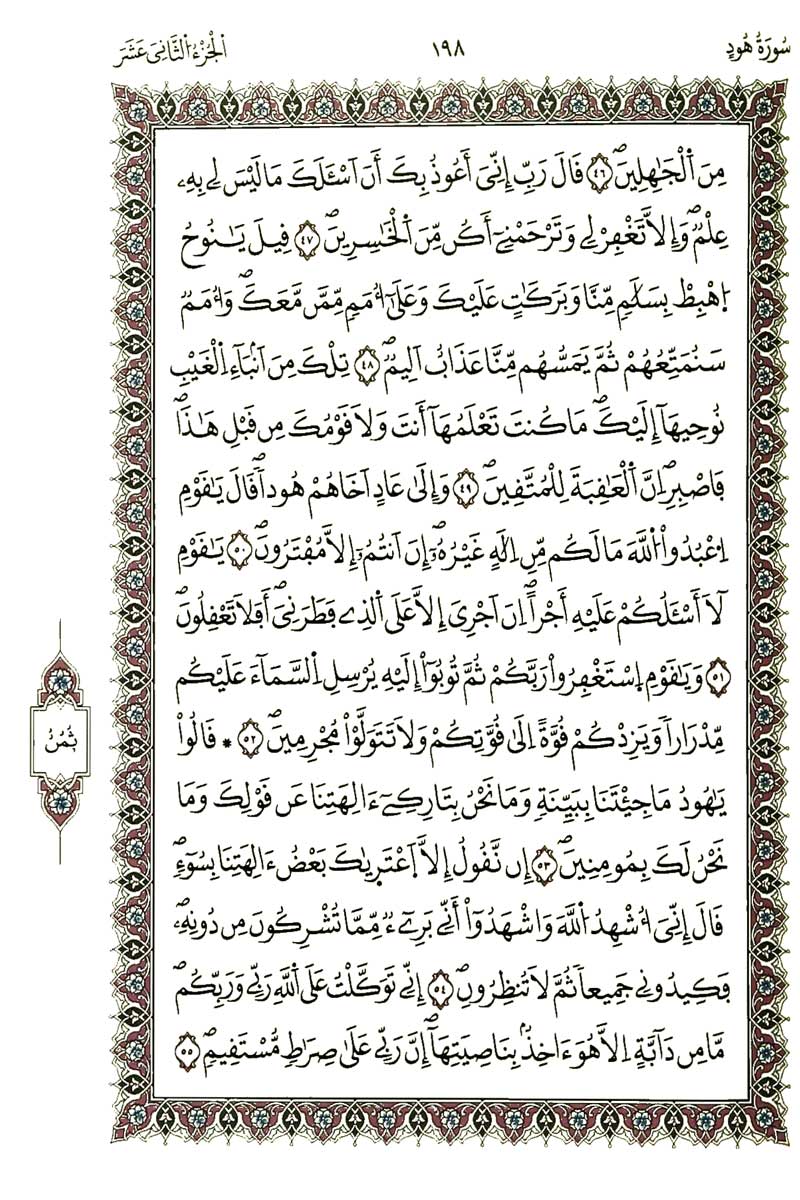 سُورَةُ هُودٍ
١٩٨
الْجُزْءُ الثَّانِيَ عَشَرَ
مِنَ اَ۬لْجَٰهِلِينَۖ ٤٦ قَالَ رَبِّ إِنِّيَ أَعُوذُ بِكَ أَنَ اَسْـَٔلَكَ مَا لَيْسَ لِے بِهِۦ
عِلْمٞۖ وَإِلاَّ تَغْفِرْ لِے وَتَرْحَمْنِےٓ أَكُن مِّنَ اَ۬لْخَٰسِرِينَۖ ٤٧ فِيلَ يَٰنُوحُ
اُ۪هْبِطْ بِسَلَٰمٖ مِّنَّا وَبَرَكَٰتٍ عَلَيْكَ وَعَلَيٰٓ أُمَمٖ مِّمَّن مَّعَكَۖ وَأُمَمٞ
سَنُمَتِّعُهُمْ ثُمَّ يَمَسُّهُم مِّنَّا عَذَابٌ اَلِيمٞۖ ٤٨ تِلْكَ مِنَ اَنۢبَآءِ اِ۬لْغَيْبِ
نُوحِيهَآ إِلَيْكَۖ مَا كُنتَ تَعْلَمُهَآ أَنتَ وَلاَ فَوْمُكَ مِن فَبْلِ هَٰذَاۖ
فَاصْبِرِۖ اِنَّ اَ۬لْعَٰفِبَةَ لِلْمُتَّفِينَۖ ٤٩ وَإِلَيٰ عَادٍ اَخَاهُمْ هُوداٗۖ فَالَ يَٰفَوْمِ
اِ۟عْبُدُواْ اُ۬للَّهَ مَا لَكُم مِّنِ اِلَٰهٍ غَيْرُهُۥٓۖ إِنَ اَنتُمُۥٓ إِلاَّ مُفْتَرُونَۖ ٥٠ يَٰفَوْمِ
لَآ أَسْـَٔلُكُمْ عَلَيْهِ أَجْراًۖ اِنَ اَجْرِيَ إِلاَّ عَلَي اَ۬لذِے فَطَرَنِيَۖ أَفَلاَ تَعْفِلُونَۖ
٥١ وَيَٰفَوْمِ اِ۪سْتَغْفِرُواْ رَبَّكُمْ ثُمَّ تُوبُوٓاْ إِلَيْهِ يُرْسِلِ اِ۬لسَّمَآءَ عَلَيْكُم
مِّدْرَاراٗ وَيَزِدْكُمْ فُوَّةً اِلَيٰ فُوَّتِكُمْ وَلاَ تَتَوَلَّوْاْ مُجْرِمِينَۖ ٥٢ * فَالُواْ
يَٰهُودُ مَا جِئْتَنَا بِبَيِّنَةٖ وَمَا نَحْنُ بِتَارِكِےٓ ءَالِهَتِنَا عَن فَوْلِكَ وَمَا
نَحْنُ لَكَ بِمُومِنِينَۖ ٥٣ إِن نَّفُولُ إِلاَّ اَ۪عْتَر۪يٰكَ بَعْضُ ءَالِهَتِنَا بِسُوٓءٖۖ
فَالَ إِنِّيَ أُشْهِدُ اُ۬للَّهَ وَاشْهَدُوٓاْ أَنِّے بَرِےٓءٞ مِّمَّا تُشْرِكُونَ مِن دُونِهِۦۖ
فَكِيدُونِے جَمِيعاٗ ثُمَّ لاَ تُنظِرُونِۖ ٥٤ إِنِّے تَوَكَّلْتُ عَلَي اَ۬للَّهِ رَبِّے وَرَبِّكُمۖ
مَّا مِن دَآبَّةٍ اِلاَّ هُوَ ءَاخِذُۢ بِنَاصِيَتِهَآۖ إِنَّ رَبِّے عَلَيٰ صِرَٰطٖ مُّسْتَفِيمٖۖ ٥٥
ثُمُنُ